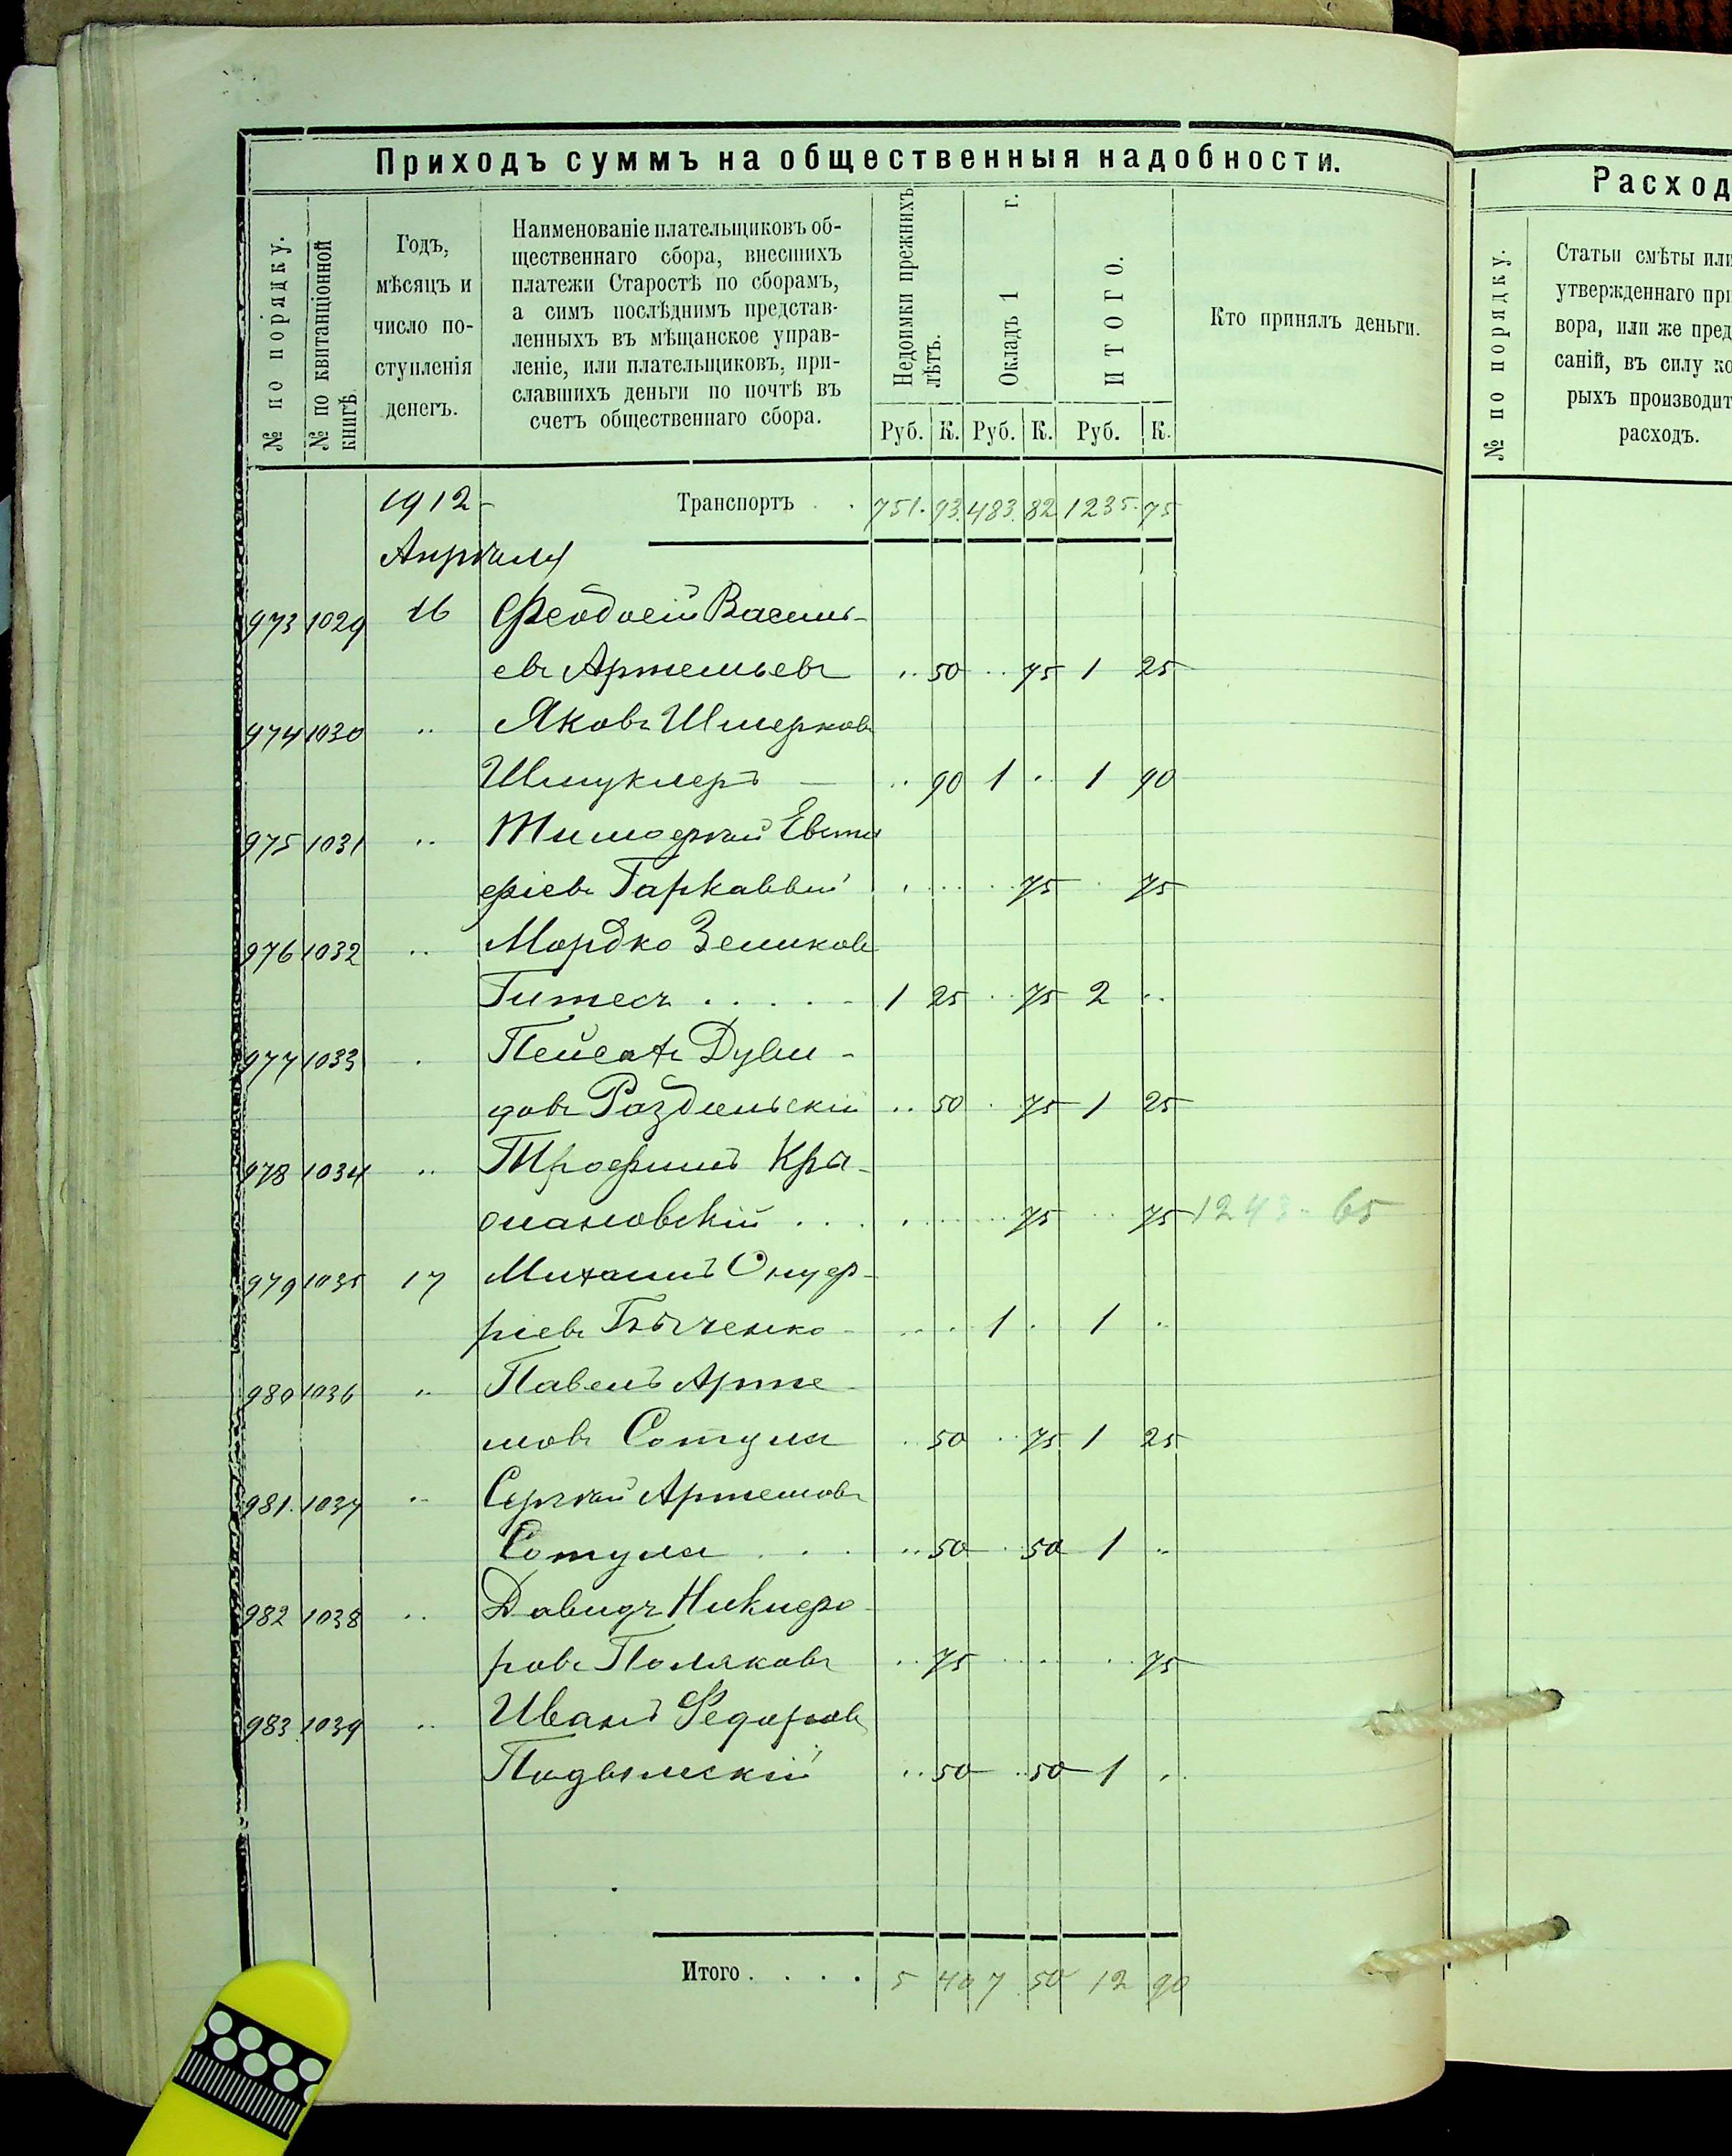 Приходъ суммъ на общественныя надобности.
№ по порядку.
№ по квитанціонной книгѣ.
Годъ,
мѣсяцъ и
число по-
ступленія
денегъ.
Наименованіе плательщиковъ об-
щественнаго сбора, внесшихъ
платежи Старостѣ по сборамъ,
а симъ послѣднимъ представ-
ленныхъ въ мѣщанское управ-
леніе, или плательщиковъ, при-
славшихъ деньги по почтѣ въ
счетъ общественнаго сбора.
Недоимки прежнихъ лѣтъ.
Окладъ 1 г.
ИТОГО.
Кто принялъ деньги.
Руб. К. Руб. К. Руб. К.
1912 - Транспортъ . . 751. 93. 483. 82 1235. 75
Апрѣля
973 1029 16 Феодосій Василь-
евъ Артемьевъ .. 50 .. 75 1 25
974 1030 .. Яковъ Шмерковъ
Шмуклеръ — .. 90 1 .. 1 90
975 1031 .. Тимофѣй Евти
фіевъ Гаркавый . . . . 75 . 75
976 1032 .. Мордко Зеликовъ
Гитесъ . . . . - 1 25 .. 75 2 ..
977 1033 . Пейсахъ Дуви-
довъ Раздольскій .. 50 . 75 1 25
978 1034 .. Трофимъ
. . . . . . 75 .. 75 1243.. 65
979 1035 17 Михаилъ Онуф-
ріевъ . . . 1 . 1 ..
980 1036 .. Павелъ Арте
мовъ Сотула . 50 .. 75 1 25
981. 1037 .. Сергѣй Артемовъ
Сотула . . . .. 50 . 50 1 ..
982 1038 .. Давидъ Никифо
ровъ Поляковъ .. 75 . . . . 75
983 1039 .. Иванъ Федоровъ
.. 50 .. 50 1 ..
Итого . . . . 5 40 7 50 12 90
Расход
№ по порядку.
Статьи смѣты или
утвержденнаго при
вора, или же пред
саній, въ силу ко
рыхъ производит
расходъ.